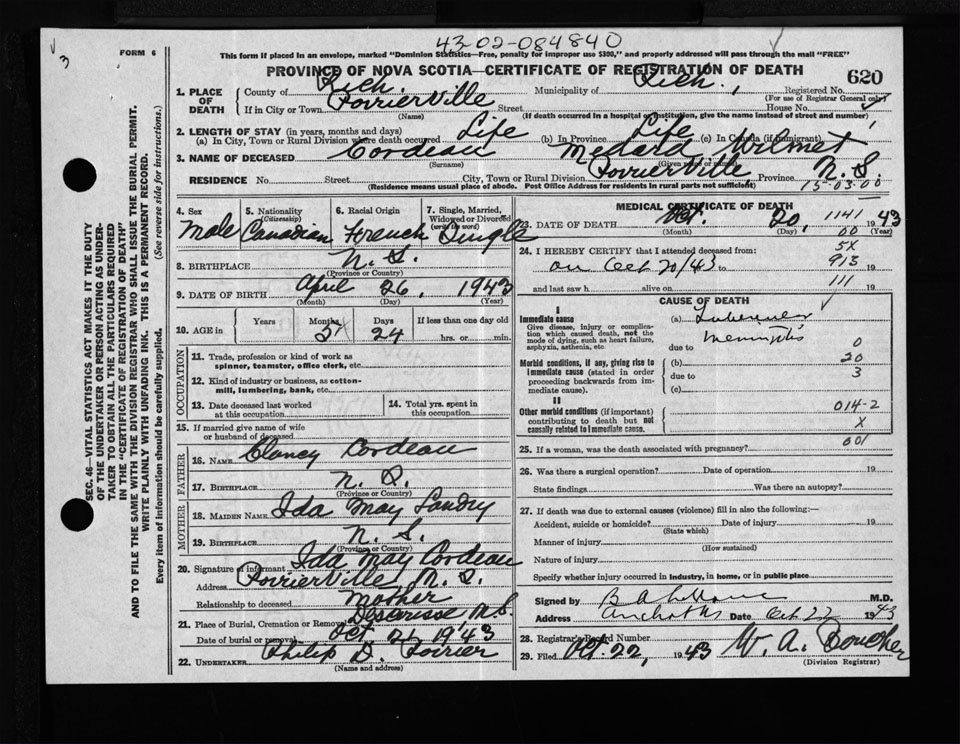 43-02-084840
FORM 6
3
This form if placed in an envelope, marked "Dominion Statistics—Free, penalty for improper use $300," and properly addressed will pass through the mail "FREE"
PROVINCE OF NOVA SCOTIA—CERTIFICATE OF REGISTRATION OF DEATH
620
1. PLACE OF DEATH
County of Rich. Municipality of Rich., Registered No.
(For use of Registrar General only)
If in City or Town PoirierVille Street House No.
(Name) (If death occurred in a hospital or institution, give the name instead of street and number)
2. LENGTH OF STAY (in years, months and days)
(a) In City, Town or Rural Division where death occurred Life (b) In Province Life (c) In Canada (if immigrant)
3. NAME OF DECEASED Cordeau Medard Wilmet
(Surname) (Given name or names)
RESIDENCE No. Street City, Town or Rural Division PoirierVille, Province N. S.
(Residence means usual place of abode. Post Office Address for residents in rural parts not sufficient)
15-03-00
4. Sex Male
5. Nationality (Citizenship) Canadian
6. Racial Origin French
7. Single, Married, Widowed or Divorced (write the word) Single
8. BIRTHPLACE N. S.
(Province or Country)
9. DATE OF BIRTH April 26, 1943
(Month) (Day) (Year)
10. AGE in Years Months 5 Days 24 If less than one day old
hrs. or min.
OCCUPATION
11. Trade, profession or kind of work as spinner, teamster, office clerk, etc.
12. Kind of industry or business, as cotton-mill, lumbering, bank, etc.
13. Date deceased last worked at this occupation
14. Total yrs. spent in this occupation
15. If married give name of wife or husband of deceased
FATHER
16. NAME Clancy Cordeau
17. BIRTHPLACE N. S.
(Province or Country)
MOTHER
18. MAIDEN NAME Ida May Landry
19. BIRTHPLACE N. S.
(Province or Country)
20. Signature of informant Ida May Cordeau
Address PoirierVille N. S.
Relationship to deceased Mother
21. Place of Burial, Cremation or Removal Descousse, N.S.
Date of burial or removal Oct 21, 1943
22. UNDERTAKER Philip D. Poirier
(Name and address)
MEDICAL CERTIFICATE OF DEATH
23. DATE OF DEATH Oct. 20, 1943
(Month) (Day) (Year)
1141
00
24. I HEREBY CERTIFY that I attended deceased from:
5X
on Oct 20/43 to 913 19
and last saw h alive on 111 19
CAUSE OF DEATH
I
Immediate cause
Give disease, injury or complication which caused death, not the mode of dying, such as heart failure, asphyxia, asthenia, etc.
(a) Tubercular
Meningitis
due to 0
Morbid conditions, if any, giving rise to immediate cause (stated in order proceeding backwards from immediate cause).
(b) 20
due to 3
(c)
II
Other morbid conditions (if important) contributing to death but not causally related to immediate cause.
014-2
X
001
25. If a woman, was the death associated with pregnancy?
26. Was there a surgical operation? Date of operation 19
State findings Was there an autopsy?
27. If death was due to external causes (violence) fill in also the following:—
Accident, suicide or homicide? Date of injury 19
(State which)
Manner of injury
(How sustained)
Nature of injury
Specify whether injury occurred in industry, in home, or in public place
Signed by M.D.
Address Arichat NS Date Oct 22 1943
28. Registrar's Record Number
29. Filed Oct. 22, 1943 W. A. Boucher
(Division Registrar)
SEC. 46—VITAL STATISTICS ACT MAKES IT THE DUTY
OF THE UNDERTAKER OR PERSON ACTING AS UNDER-
TAKER TO OBTAIN ALL THE PARTICULARS REQUIRED
IN THE "CERTIFICATE OF REGISTRATION OF DEATH"
AND TO FILE THE SAME WITH THE DIVISION REGISTRAR WHO SHALL ISSUE THE BURIAL PERMIT.
WRITE PLAINLY WITH UNFADING INK. THIS IS A PERMANENT RECORD.
Every item of information should be carefully supplied. (See reverse side for instructions.)